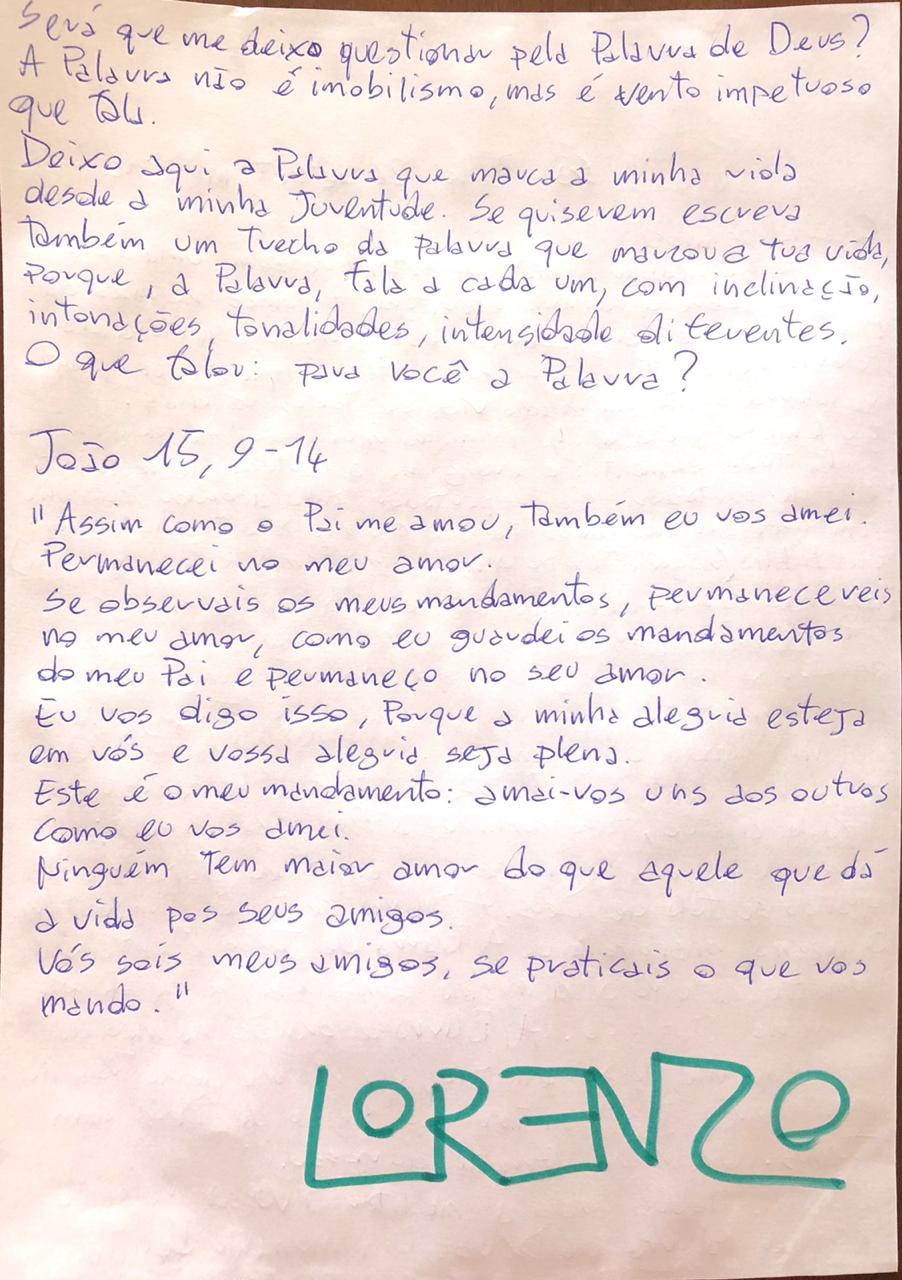 Será que me deixo questionar pela Palavra de Deus?
A Palavra não é imobilismo, mas é vento impetuoso
que fala.
Deixo aqui a Palavra que marca a minha vida
desde a minha Juventude. Se quiserem escreva
também um trecho da palavra que marcou a tua vida,
Porque, a Palavra, fala a cada um, com inclinação,
intonações, tonalidades, intensidade diferentes.
O que falou: para você a Palavra?
João 15, 9-14
"Assim como o Pai me amou, também eu vos amei.
Permanecei no meu amor.
Se observais os meus mandamentos, permanecereis
no meu amor, como eu guardei os mandamentos
do meu Pai e permaneço no seu amor.
Eu vos digo isso, Porque a minha alegria esteja
em vós e vossa alegria seja plena.
Este é o meu mandamento: amai-vos uns aos outros
como eu vos amei.
Ninguém tem maior amor do que aquele que dá
a vida pos seus amigos.
Vós sois meus amigos, se praticais o que vos
mando."
LORENZO